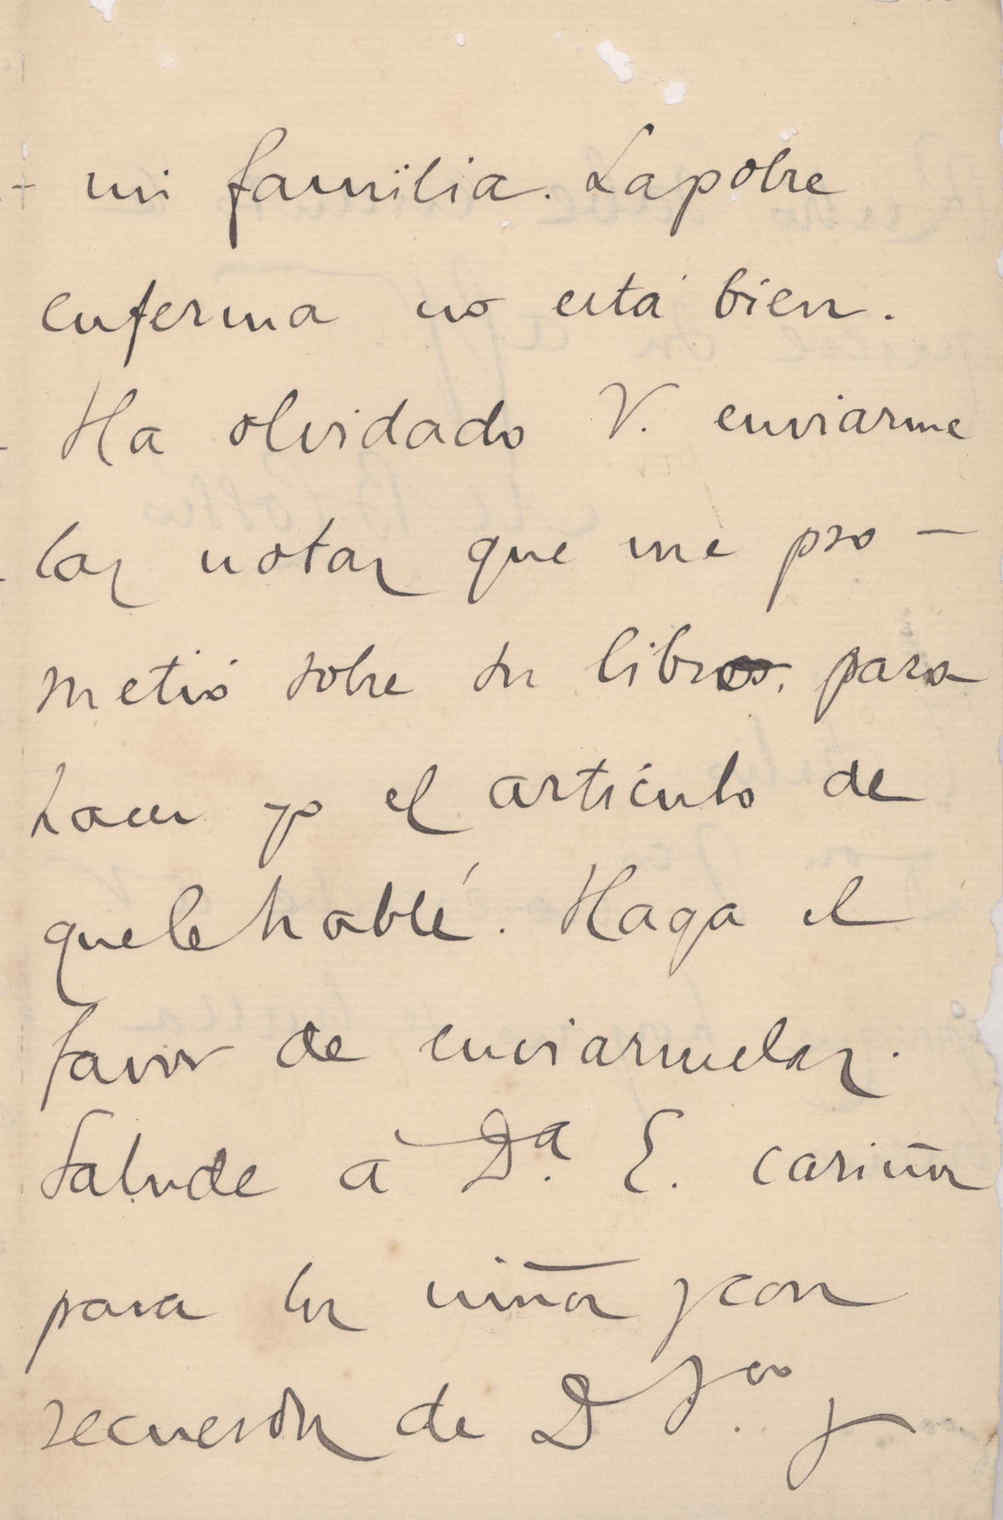 mi familia. La pobre
enferma no está bien.
Ha olvidado V. enviarme
las notas que me pro-
metió sobre su libro, para
hacer yo el artículo de
que le hablé. Haga el
favor de enviarmelas.
Salude a Dª. E. cariños
para los niños y con
recuerdos de D Fco. y